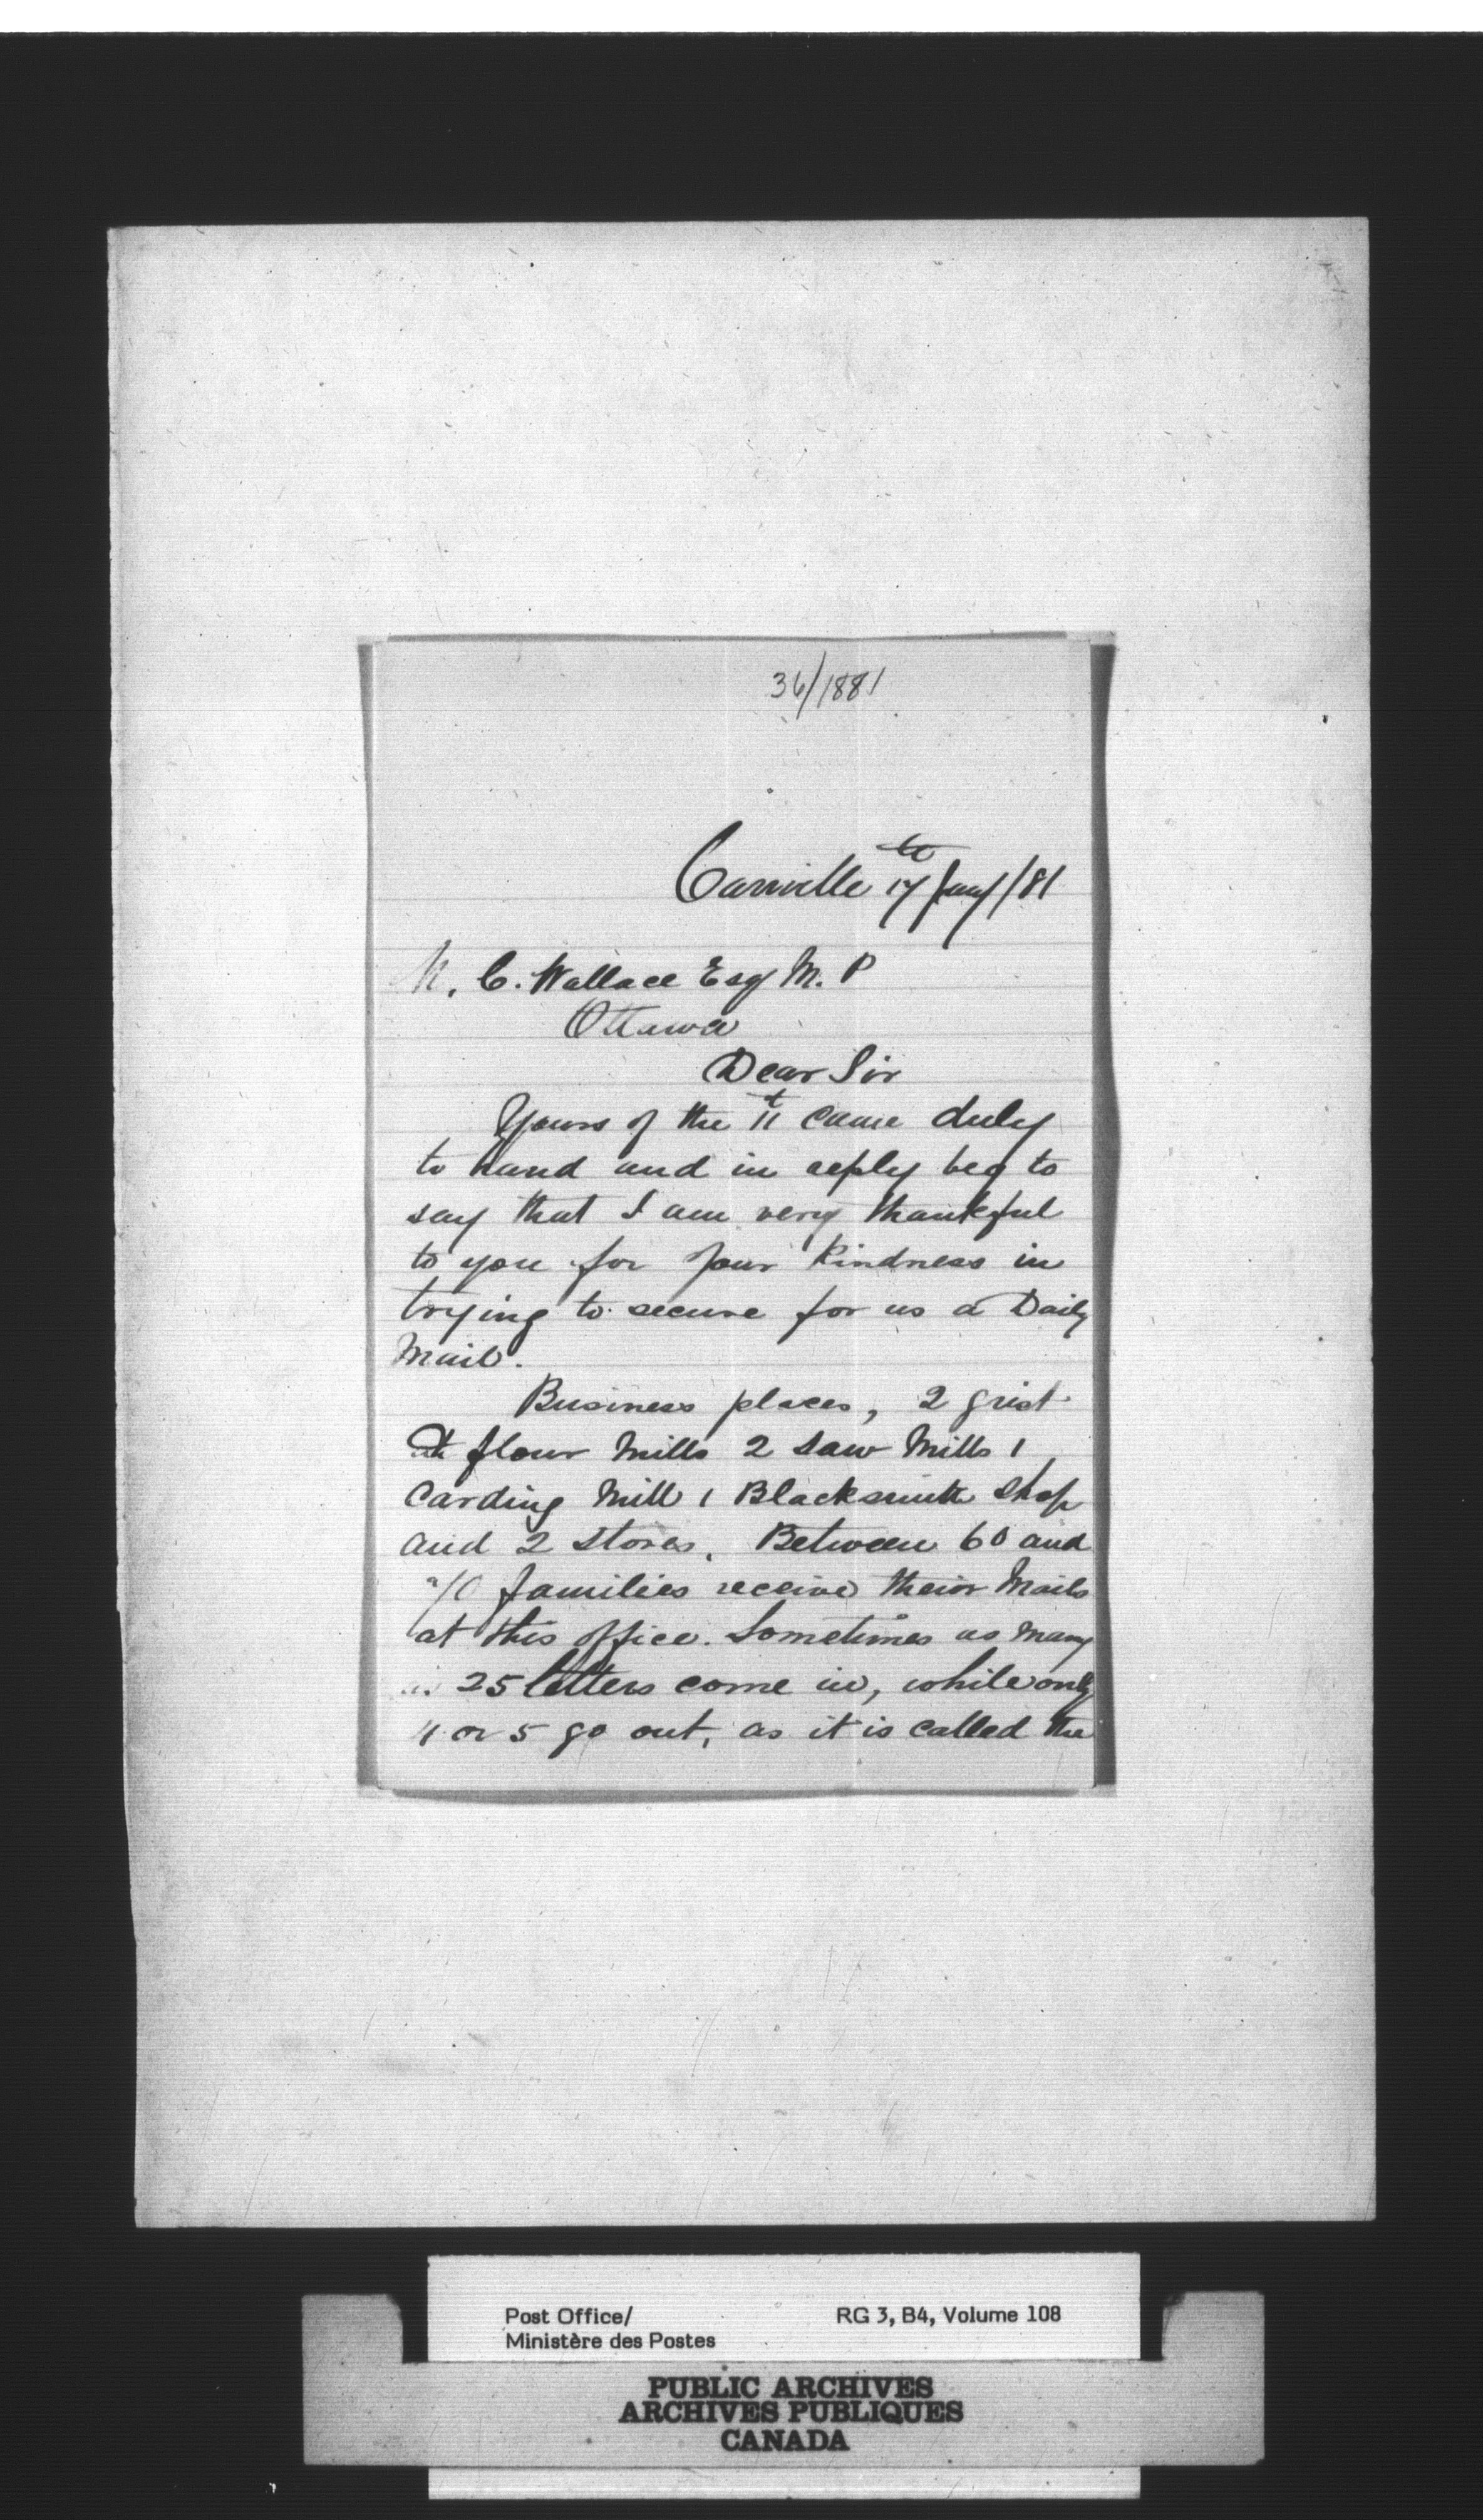 36/1881
Carrville 17th Jany/81
N. C. Wallace Esq M. P
Ottawa
Dear Sir
Yours of the 11t came duly
to hand and in reply beg to
say that I am very thankful
to you for your kindness in
trying to secure for us a Daily
Mail.
Business places, 2 grist
& flour Mills 2 saw Mills 1
Carding Mill 1 Blacksmith shop
and 2 stores. Between 60 and
70 families receive their Mails
at this office. Sometimes as many
as 25 letters come in, while only
4 or 5 go out, as it is called the
Post Office/
Ministère des Postes
RG 3, B4, Volume 108
PUBLIC ARCHIVES
ARCHIVES PUBLIQUES
CANADA